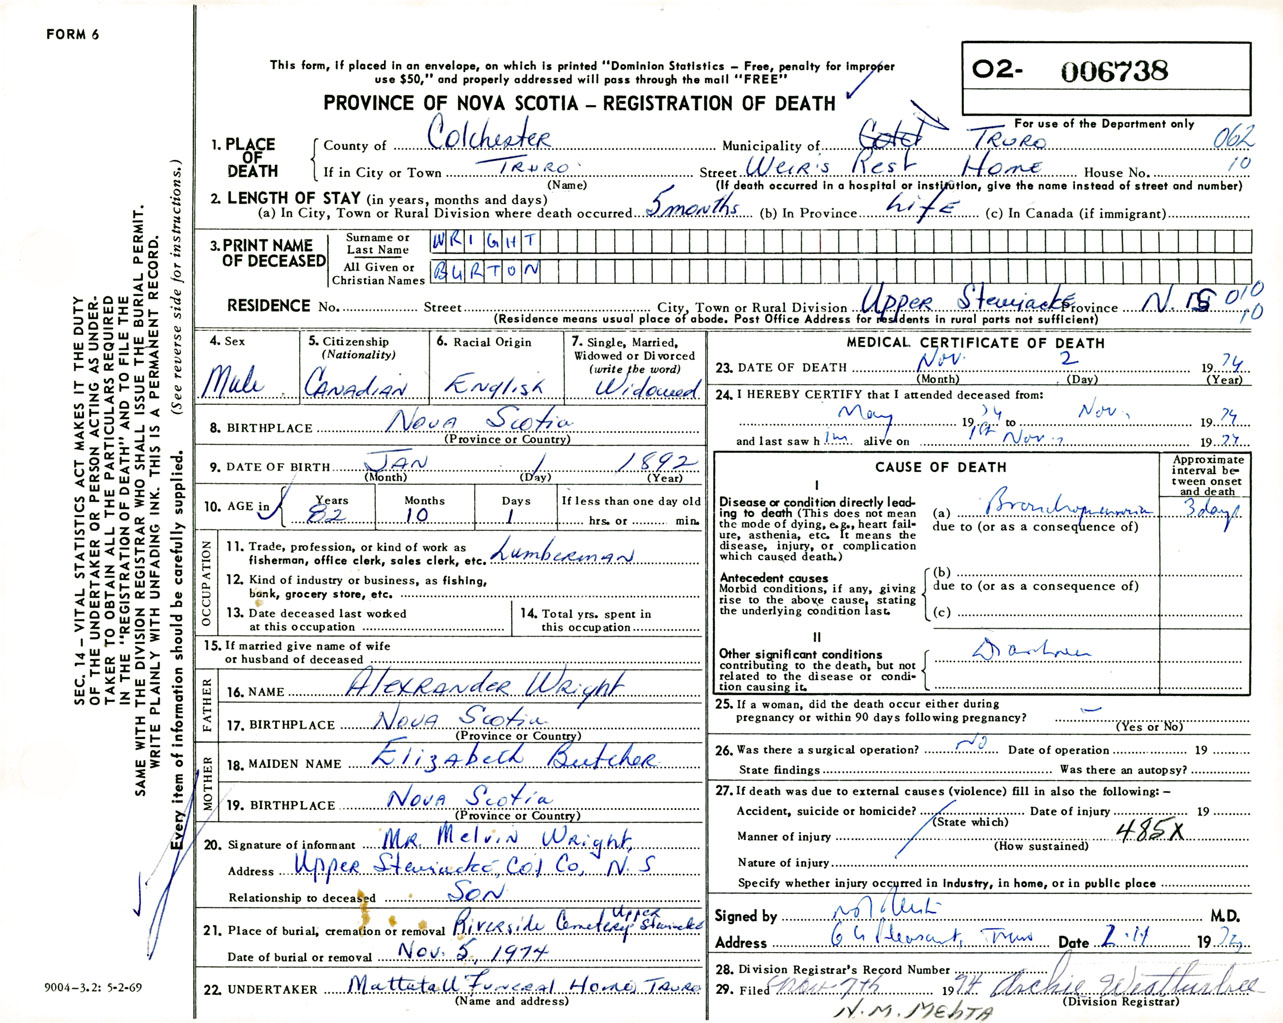 FORM 6
This form, if placed in an envelope, on which is printed "Dominion Statistics – Free, penalty for improper
use $50," and properly addressed will pass through the mail "FREE"
PROVINCE OF NOVA SCOTIA – REGISTRATION OF DEATH
O2- 006738
For use of the Department only
062
10
1. PLACE OF DEATH
County of Colchester Municipality of Truro
If in City or Town Truro Street Weir's Rest Home House No.
(Name) (If death occurred in a hospital or institution, give the name instead of street and number)
2. LENGTH OF STAY (in years, months and days)
(a) In City, Town or Rural Division where death occurred 5 months (b) In Province Life (c) In Canada (if immigrant)
3. PRINT NAME OF DECEASED
Surname or Last Name WRIGHT
All Given or Christian Names BURTON
RESIDENCE No. Street City, Town or Rural Division Upper Stewiacke Province N.S 010
10
(Residence means usual place of abode. Post Office Address for residents in rural parts not sufficient)
4. Sex
Male
5. Citizenship
(Nationality)
Canadian
6. Racial Origin
English
7. Single, Married,
Widowed or Divorced
(write the word)
Widowed
8. BIRTHPLACE Nova Scotia
(Province or Country)
9. DATE OF BIRTH JAN 1 1892
(Month) (Day) (Year)
10. AGE in
Years Months Days If less than one day old
82 10 1 hrs. or min.
OCCUPATION
11. Trade, profession, or kind of work as
fisherman, office clerk, sales clerk, etc. Lumberman
12. Kind of industry or business, as fishing,
bank, grocery store, etc.
13. Date deceased last worked
at this occupation
14. Total yrs. spent in
this occupation
15. If married give name of wife
or husband of deceased
FATHER
16. NAME Alexrander Wright
17. BIRTHPLACE Nova Scotia
(Province or Country)
MOTHER
18. MAIDEN NAME Elizabeth Butcher
19. BIRTHPLACE Nova Scotia
(Province or Country)
20. Signature of informant Mr. Melvin Wright,
Address Upper Stewiacke, Col Co, N.S
Relationship to deceased Son
21. Place of burial, cremation or removal Riverside Cemetery Upper Stewiacke
Date of burial or removal Nov. 5, 1974
22. UNDERTAKER Mattatall Funeral Home, Truro
(Name and address)
MEDICAL CERTIFICATE OF DEATH
23. DATE OF DEATH Nov. 2 1974
(Month) (Day) (Year)
24. I HEREBY CERTIFY that I attended deceased from:
May 1974 to Nov. 1974
and last saw h im alive on 1st Nov. 1974
CAUSE OF DEATH
Approximate
interval be-
tween onset
and death
I
Disease or condition directly lead-
ing to death (This does not mean
the mode of dying, e.g., heart fail-
ure, asthenia, etc. It means the
disease, injury, or complication
which caused death.)
(a) Bronchopneumonia 3 days
due to (or as a consequence of)
Antecedent causes
Morbid conditions, if any, giving
rise to the above cause, stating
the underlying condition last.
(b)
due to (or as a consequence of)
(c)
II
Other significant conditions
contributing to the death, but not
related to the disease or condi-
tion causing it.
25. If a woman, did the death occur either during
pregnancy or within 90 days following pregnancy? –
(Yes or No)
26. Was there a surgical operation? No Date of operation 19
State findings Was there an autopsy?
27. If death was due to external causes (violence) fill in also the following: –
Accident, suicide or homicide? Date of injury 19
(State which)
Manner of injury 485X
(How sustained)
Nature of injury
Specify whether injury occurred in Industry, in home, or in public place
Signed by M.D.
Address Pleasant, Truro Date 2-11 1974
28. Division Registrar's Record Number
29. Filed Nov 7th 1974 Archie
(Division Registrar)
N.M. MEHTA
SEC. 14 – VITAL STATISTICS ACT MAKES IT THE DUTY
OF THE UNDERTAKER OR PERSON ACTING AS UNDER-
TAKER TO OBTAIN ALL THE PARTICULARS REQUIRED
IN THE "REGISTRATION OF DEATH" AND TO FILE THE
SAME WITH THE DIVISION REGISTRAR WHO SHALL ISSUE THE BURIAL PERMIT.
WRITE PLAINLY WITH UNFADING INK. THIS IS A PERMANENT RECORD.
Every item of information should be carefully supplied. (See reverse side for instructions.)
9004-3.2: 5-2-69